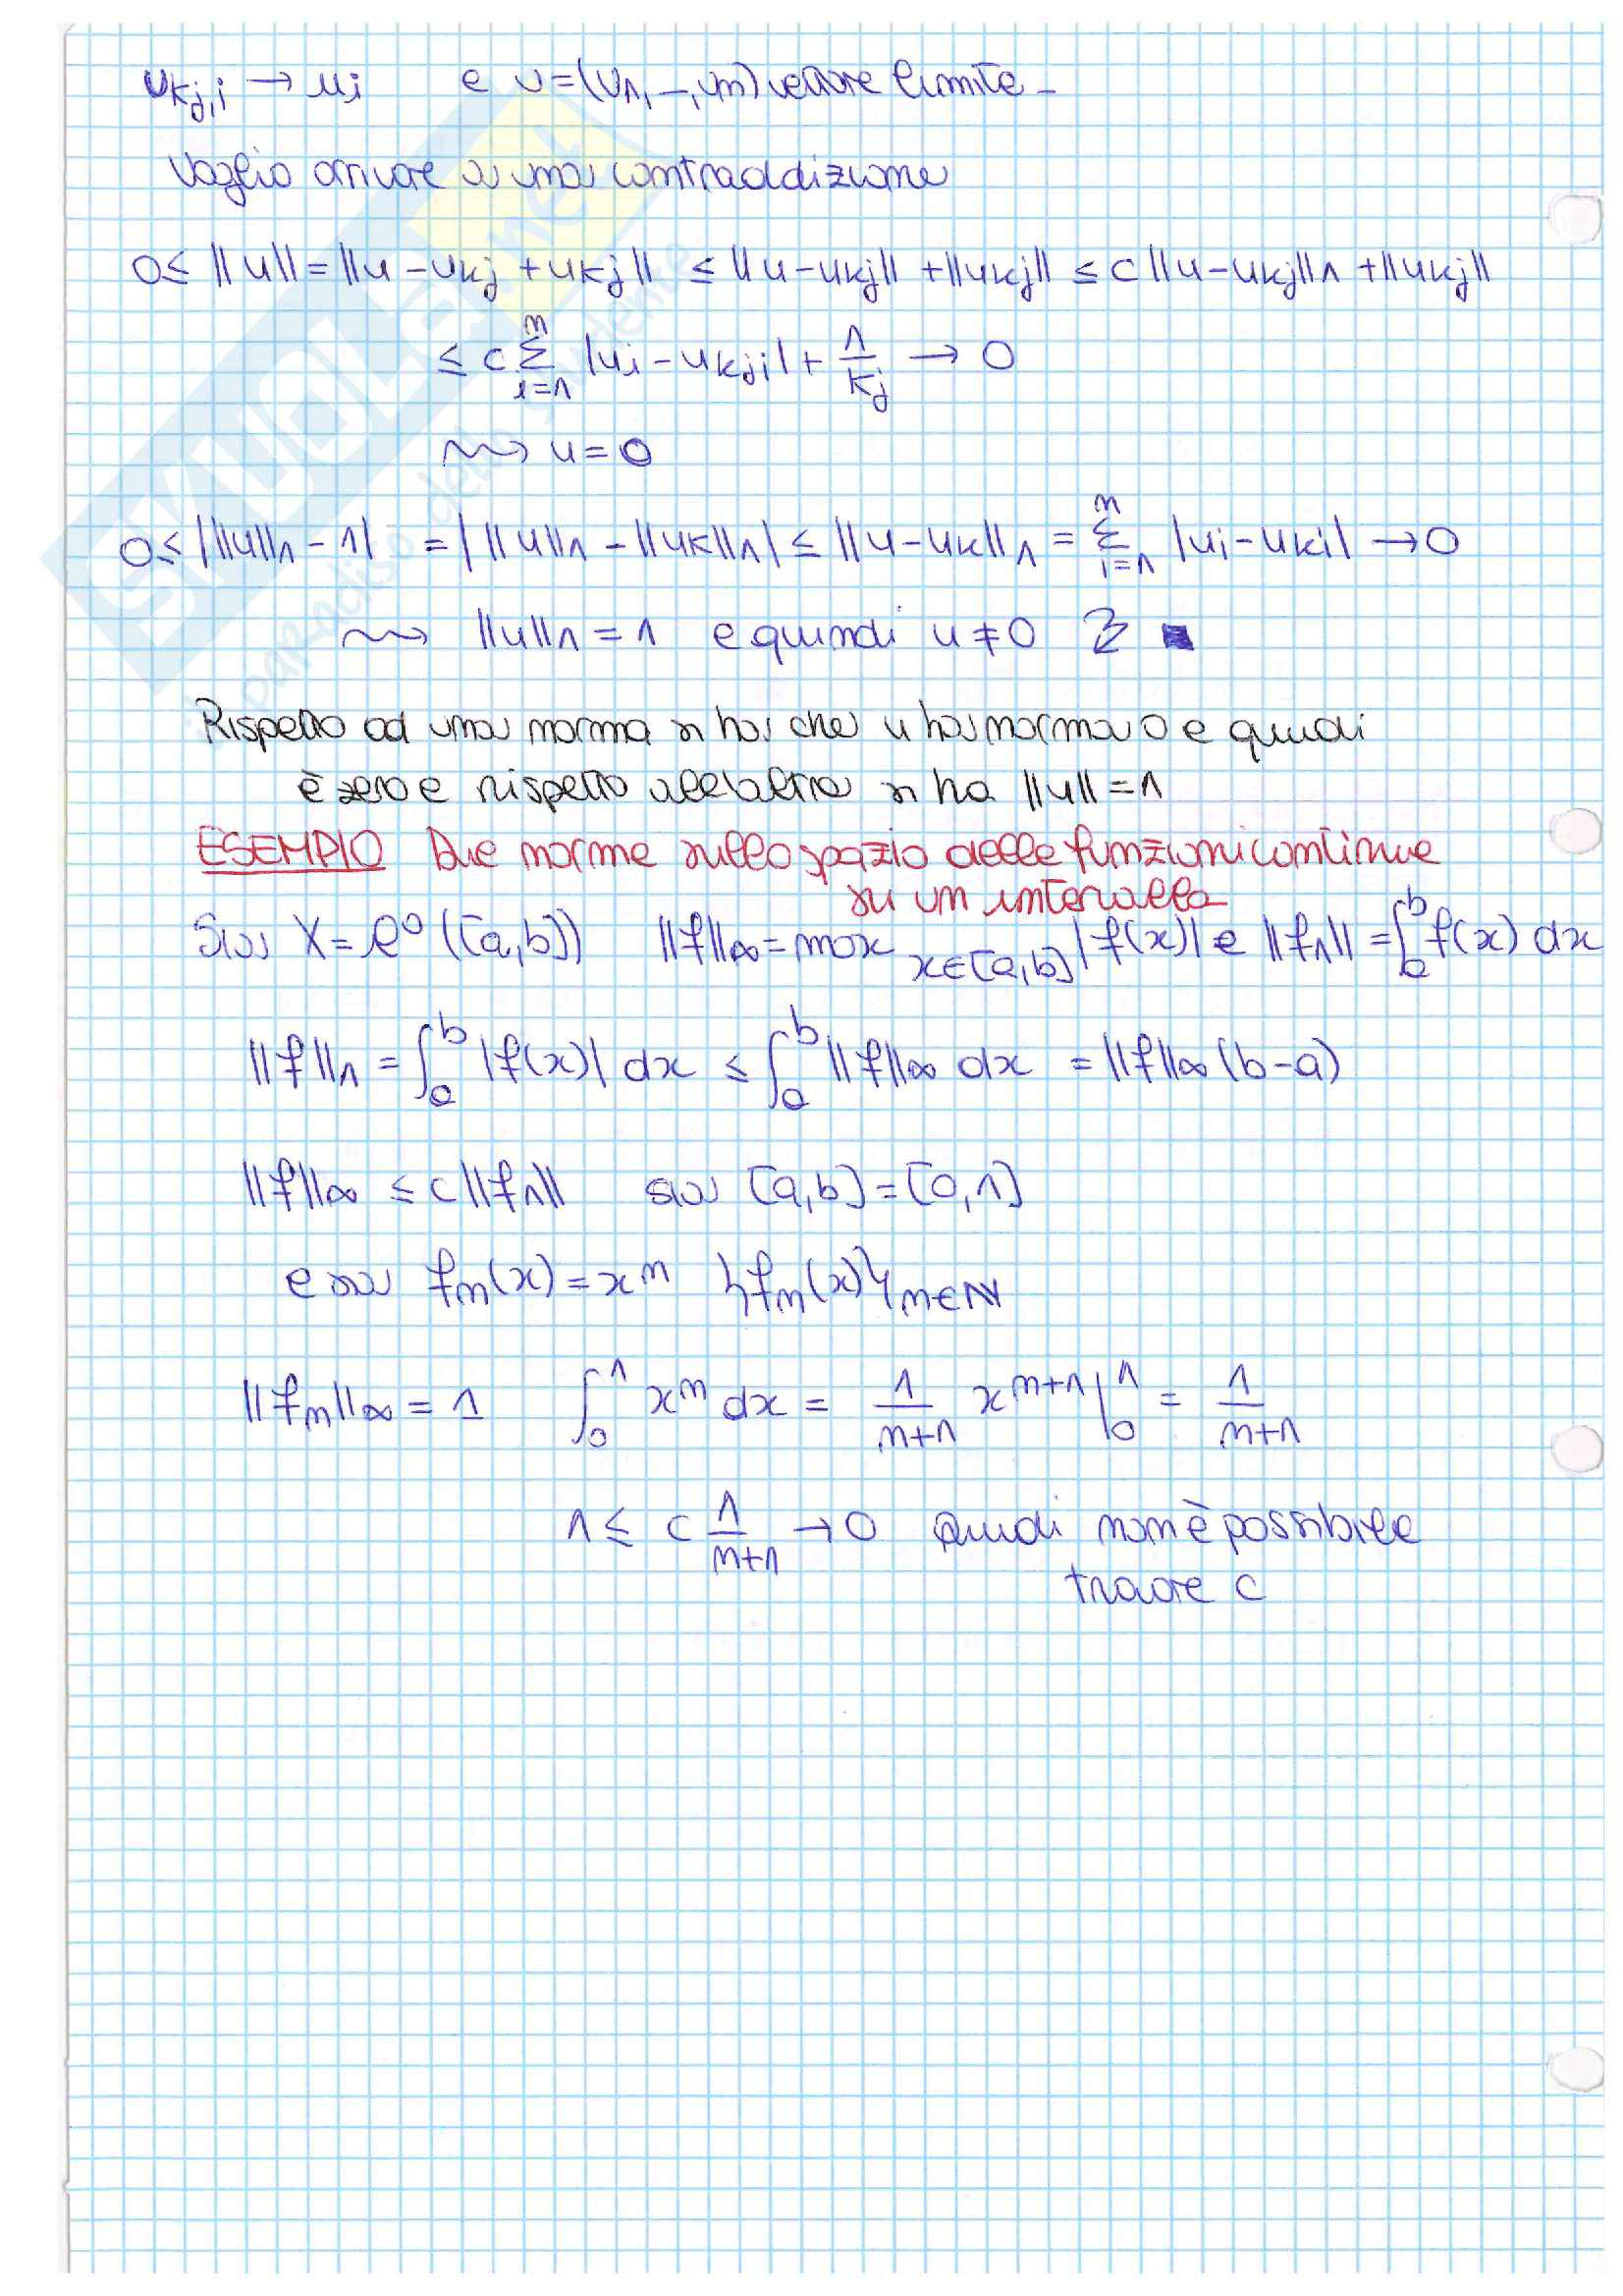 u_{kj,i} → u_i e u=(u1,–,un) vettore limite –
Voglio arrivare a una contraddizione
0≤ ||u||=||u-u_{kj}+u_{kj}|| ≤||u-u_{kj}||+||u_{kj}|| ≤c||u-u_{kj}||_1+||u_{kj}||
≤ c Σ_{i=1}^{n} |u_i-u_{kji}|+ 1/k_j → 0
⇝ u=0
0≤ | ||u||_1-1| =| ||u||_1-||u_k||_1| ≤ ||u-u_k||_1= Σ_{i=1}^{n} |u_i-u_{ki}| →0
⇝ ||u||_1=1 e quindi u≠0 ↯ ■
Rispetto ad una norma si ha che u ha norma 0 e quindi
è zero e rispetto all'altra si ha ||u||=1
ESEMPIO Due norme sullo spazio delle funzioni continue
su un intervallo
Sia X= C⁰([a,b]) ||f||_∞=max_{x∈[a,b]}|f(x)| e ||f_1||=∫_a^b f(x) dx
||f||_1=∫_a^b |f(x)| dx ≤ ∫_a^b ||f||_∞ dx =||f||_∞(b-a)
||f||_∞ ≤ c||f_1|| sia [a,b]=[0,1]
e sia f_n(x)=x^n {f_n(x)}_{n∈ℕ}
||f_n||_∞=1 ∫_0^1 x^n dx = 1/(n+1) x^{n+1}|_0^1 = 1/(n+1)
1≤ c 1/(n+1) →0 Quindi non è possibile
trovare c
SKUOLA.net
il paradiso dello studente